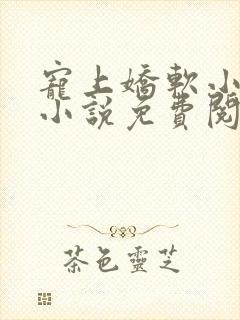 寵上嬌軟小
小說免費閱
茶色靈芝